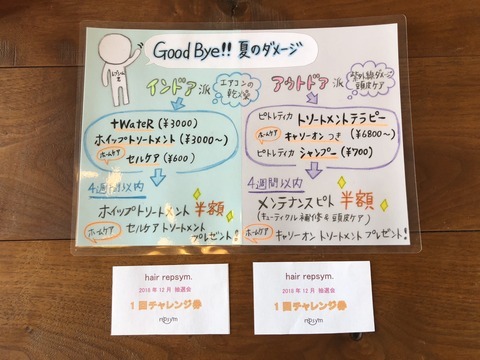 Good Bye!! 夏のダメージ
インドア派
エアコンの
乾燥
アウトドア派
紫外線ダメージ
頭皮ケア
+WateR (¥3000)
ホイップトリートメント (¥3000〜)
ホームケア セルケア (¥600)
ピトレティカ トリートメントテラピー
ホームケア キャリーオン つき (¥6800〜)
ピトレティカ シャンプー (¥700)
4週間以内
ホイップトリートメント 半額
ホームケア セルケア トリートメント
プレゼント!
4週間以内
メンテナンスピト 半額
(キューティクル補修&頭皮ケア)
ホームケア キャリーオン トリートメント プレゼント!
hair repsym.
2018 年 12 月 抽選会
1 回チャレンジ券
repsym
hair repsym.
2018 年 12 月 抽選会
1 回チャレンジ券
repsym